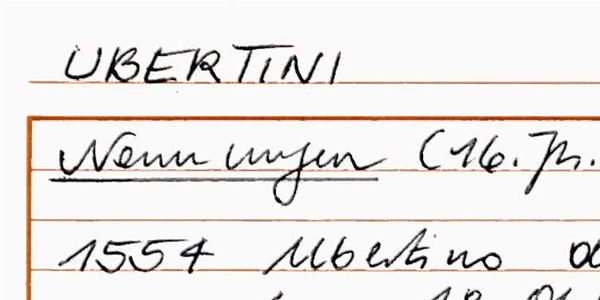 UBERTINI
Nennungen (16. Jh.
1554 Ubertino